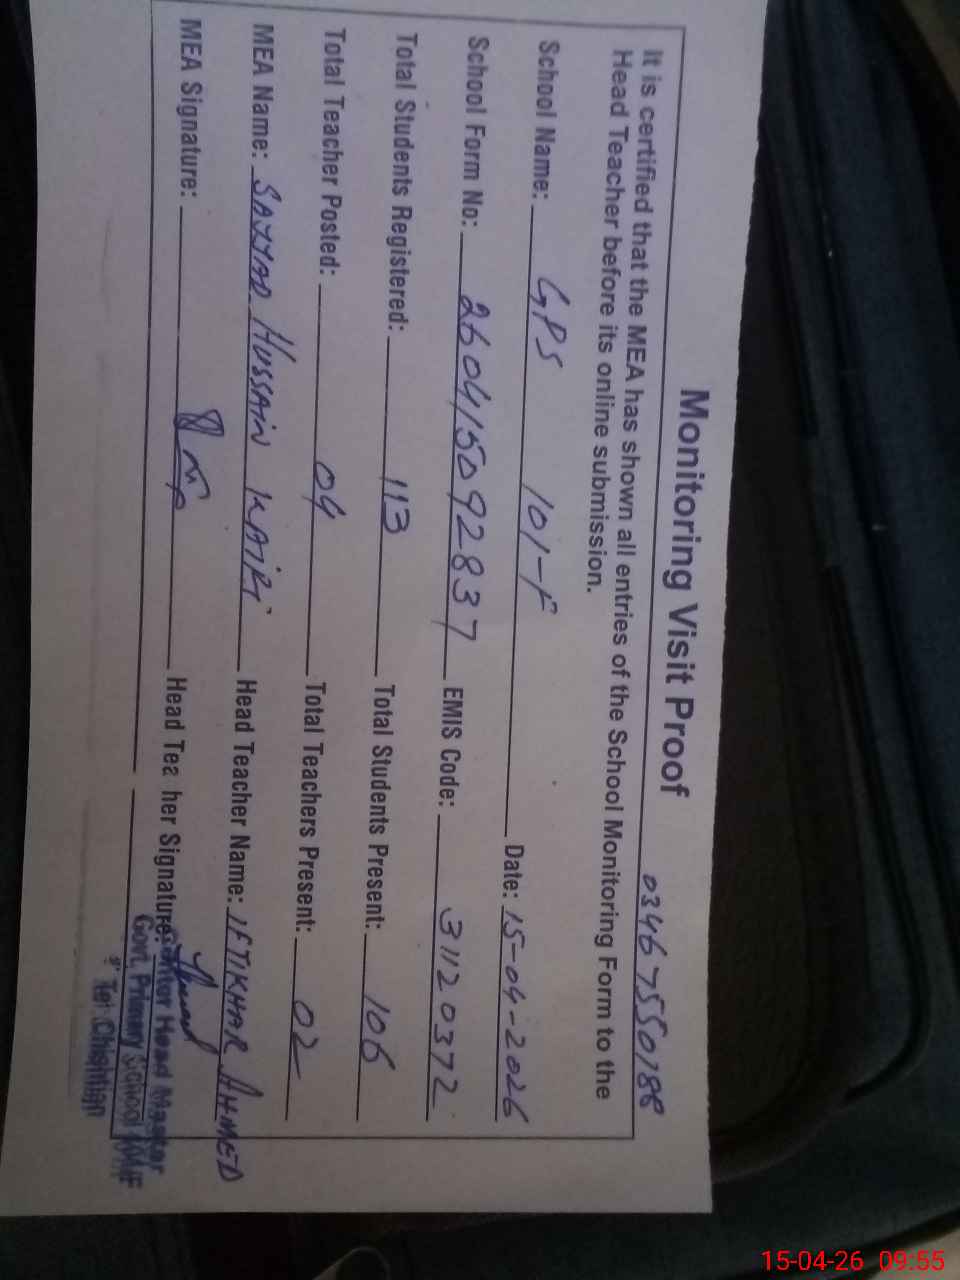 Monitoring Visit Proof
03467550788
It is certified that the MEA has shown all entries of the School Monitoring Form to the
Head Teacher before its online submission.
School Name: GPS 101-F Date: 15-04-2026
School Form No: 26041509 2837 EMIS Code: 31120372
Total Students Registered: 113 Total Students Present: 106
Total Teacher Posted: 04 Total Teachers Present: 02
MEA Name: SAJJAD HUSSAIN Head Teacher Name: IFTIKHAR AHMED
MEA Signature: Head Tea her Signature:
Head Master
Govt. Primary School
Teh: Chishtian
15-04-26 09:55